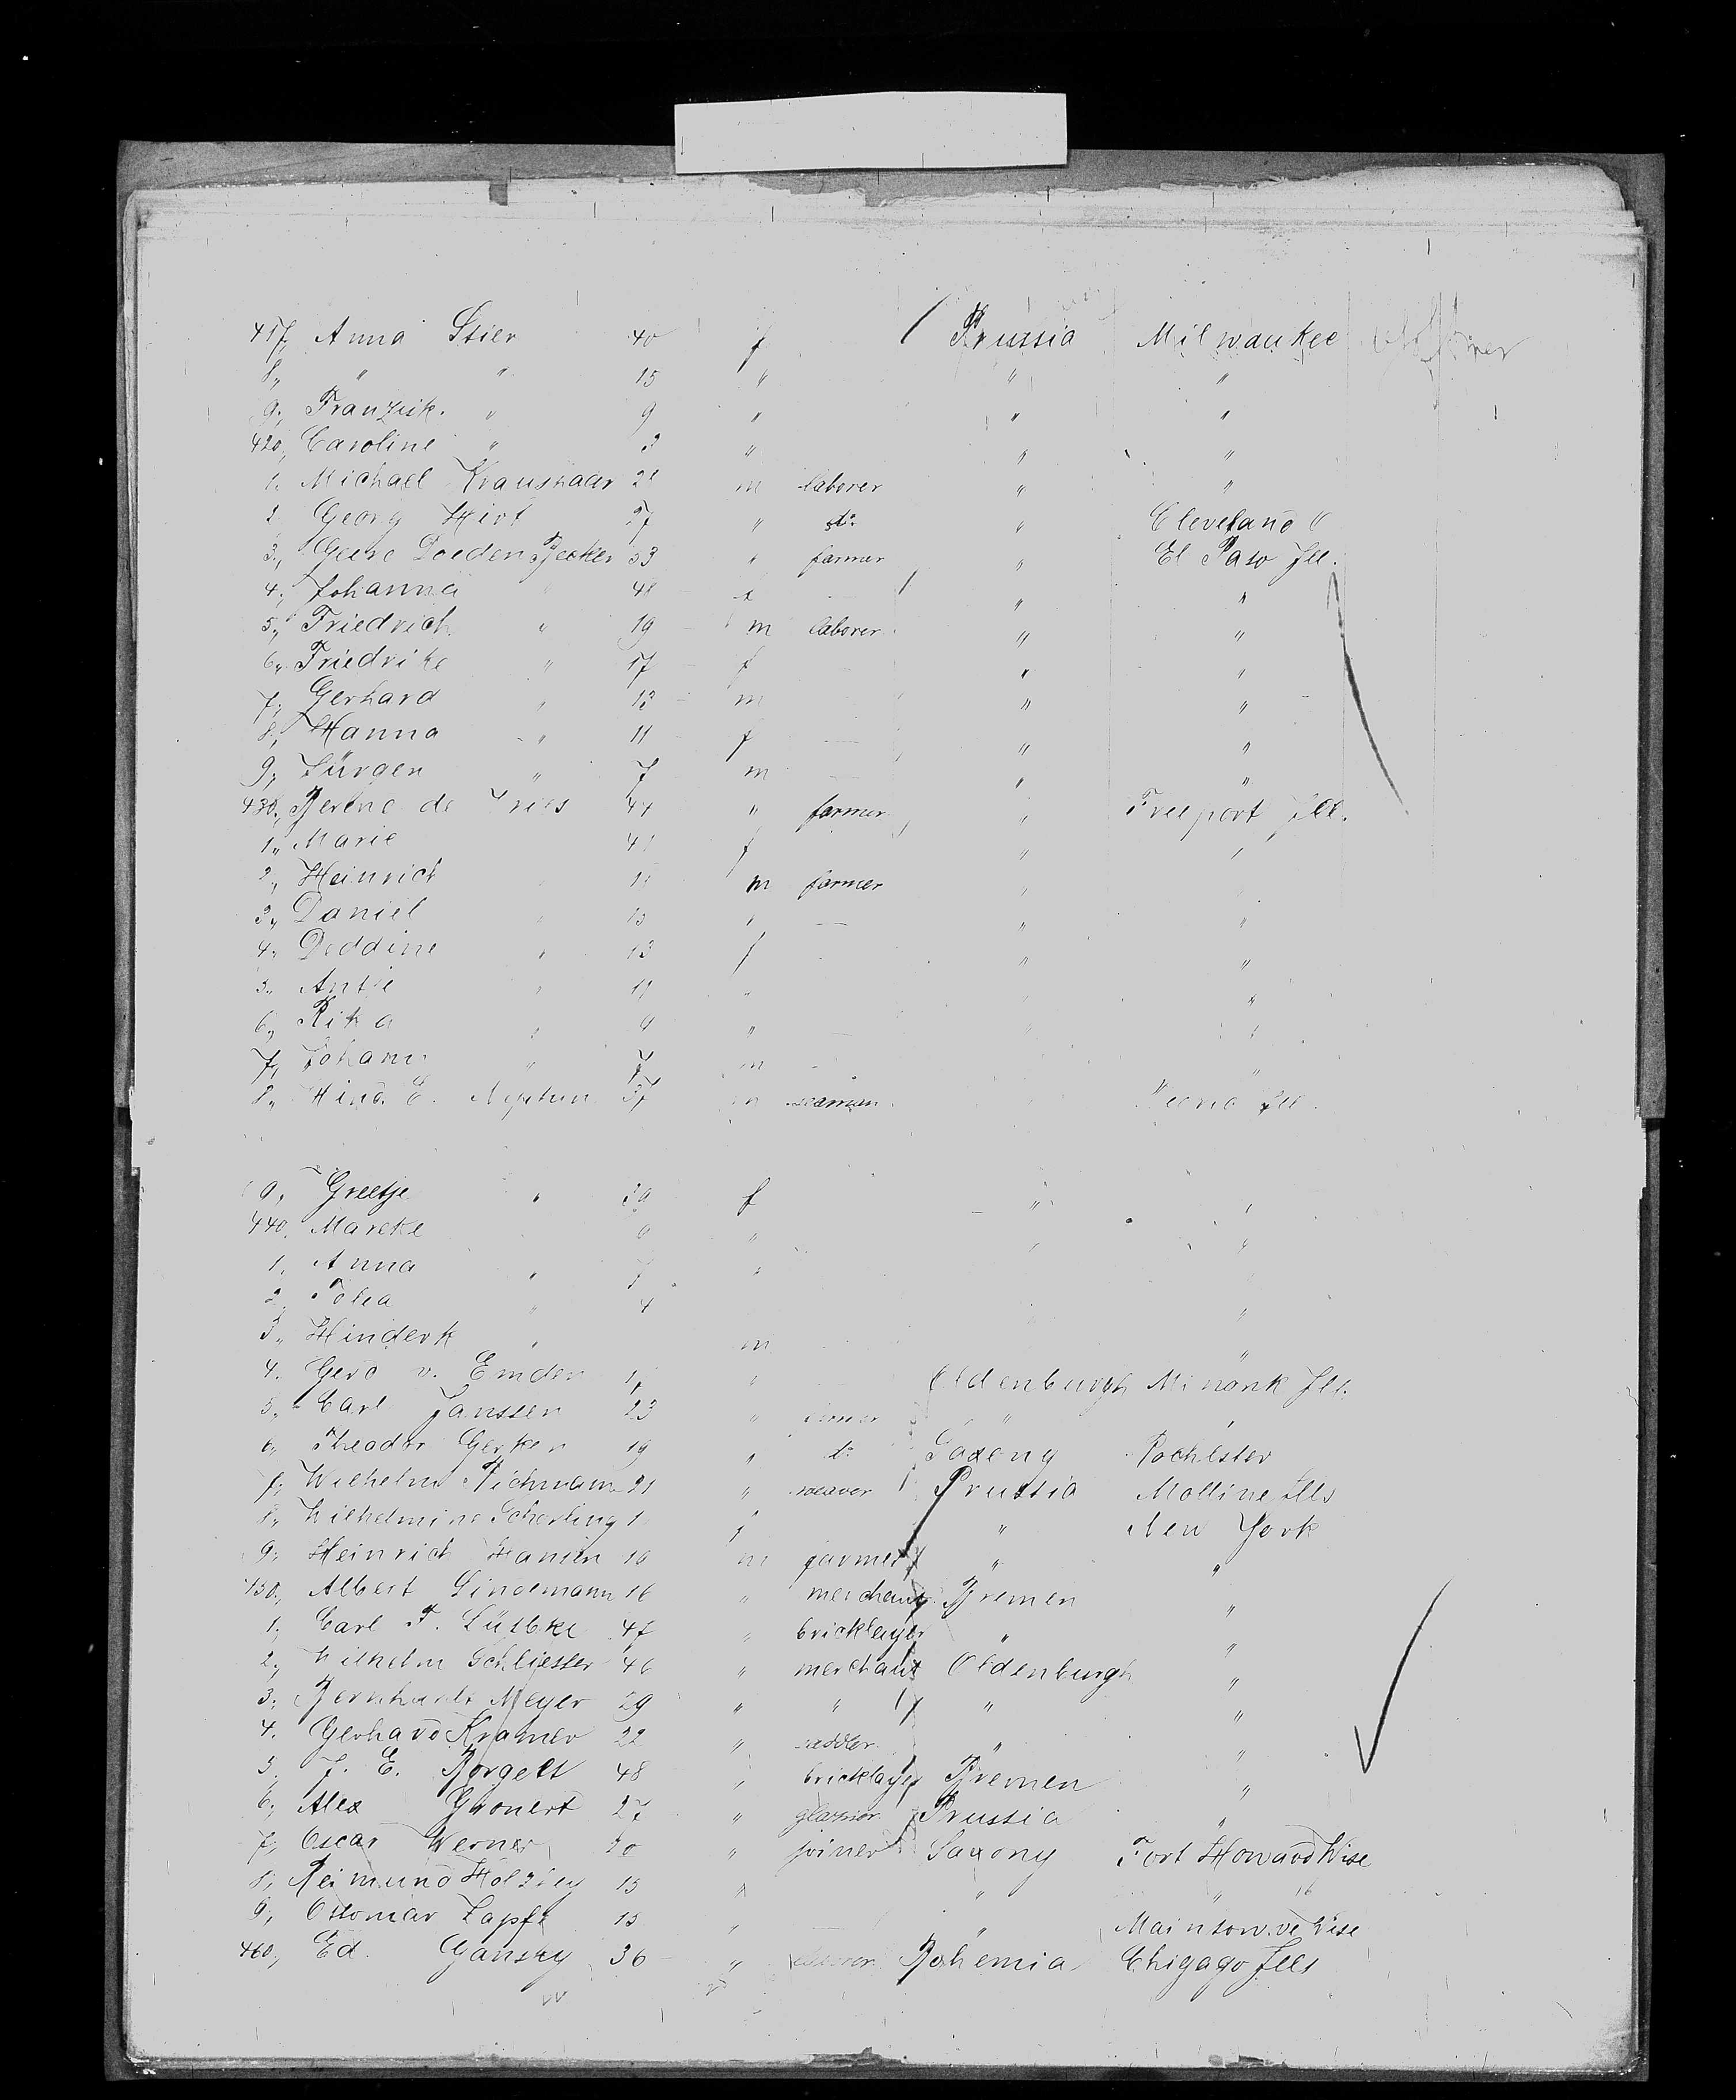 417, Anna Stier 40 f Prussia Milwaukee
8, " " 15 " " "
9, Franzisk. " 9 " " "
420, Caroline " 3 " " "
1. Michael Kraushaar 21 m laborer " "
2 Georg Hirt 27 " do. " Cleveland O
3, Geerd Doeden Becker 53 " farmer " El Paso Ill.
4, Johanna " 48 f " "
5, Friedrich " 19 m laborer " "
6, Friedrike " 17 f " "
7, Gerhard " 13 m " "
8, Hanna " 11 f " "
9, Jürgen " 7 m " "
430, Berend de Vries 44 " farmer " Freeport Ill.
1, Marie 41 f " "
2, Heinrich m farmer " "
3, Daniel " 15 " — " "
4, Deddine " 13 f " "
5, Antje " 11 " " "
6, Rika " 9 " " "
7, Johann " 7 m "
8, Hind. E. 37 m seaman Ill.
9, Greetje " 39 f " "
440, Mareke 9 " " "
1, Anna " 7 "
2, " 4 "
3, Hinderk " m "
4. Gerd v. Emden " Oldenburgh Minonk Ill.
5, Carl Janssen 23 " "
6, Theodor Gerken 19 " do. Saxony Rochester
7, Wilhelm 21 " weaver Prussia Molline Ills
8, Wilhelmine Scherling f " New York
9, Heinrich Hansen 19 m farmer " "
450, Albert Lindemann 16 " merchant Bremen "
1, Carl F. Lübke 47 " bricklayer " "
2, Wilhelm Schliesser 46 " merchant Oldenburgh "
3, Bernhard Meyer 29 " " " "
4. Gerhard Kramer 22 " saddler " "
5, J. E. Borgelt 48 " bricklayer Bremen "
6, Alex Gronert 27 " Prussia "
7, Oscar Werner 20 " joiner Saxony Fort Howard Wise
8, Reimund 15 " " "
9, Ottomar Zapfe 15 " — " Wise
460, Ed. Gansky 36 " Bohemia Chigago Ills